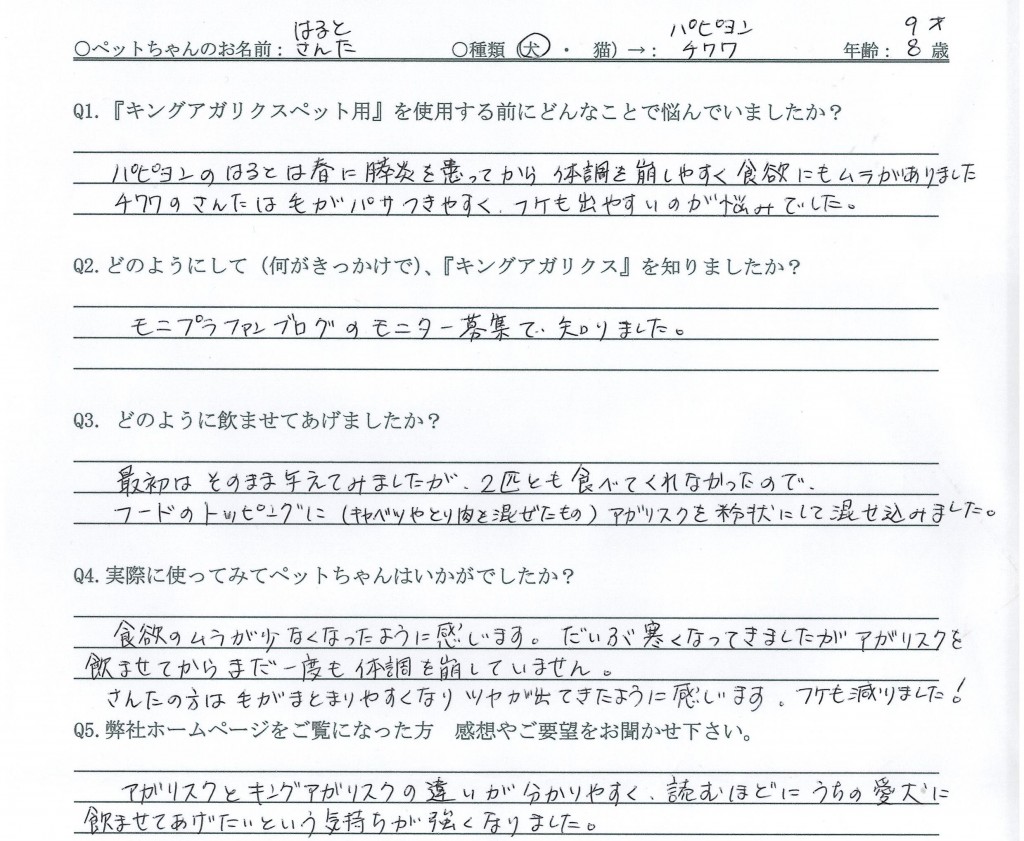 はると パピヨン 9才
○ペットちゃんのお名前：さんた ○種類（犬・ 猫）→：チワワ 年齢：8歳
Q1.『キングアガリクスペット用』を使用する前にどんなことで悩んでいましたか？
パピヨンのはるとは春に膵炎を患ってから体調を崩しやすく食欲にもムラがありました
チワワのさんたは毛がパサつきやすく、フケも出やすいのが悩みでした。
Q2.どのようにして（何がきっかけで）、『キングアガリクス』を知りましたか？
モニプラファンブログのモニター募集で知りました。
Q3. どのように飲ませてあげましたか？
最初はそのまま与えてみましたが、2匹とも食べてくれなかったので、
フードのトッピングに（キャベツやとり肉を混ぜたもの）アガリスクを粉状にして混ぜ込みました。
Q4.実際に使ってみてペットちゃんはいかがでしたか？
食欲のムラが少なくなったように感じます。だいぶ寒くなってきましたがアガリスクを
飲ませてからまだ一度も体調を崩していません。
さんたの方は毛がまとまりやすくなりツヤが出てきたように感じます。フケも減りました！
Q5.弊社ホームページをご覧になった方 感想やご要望をお聞かせ下さい。
アガリスクとキングアガリスクの違いが分かりやすく、読むほどにうちの愛犬に
飲ませてあげたいという気持ちが強くなりました。